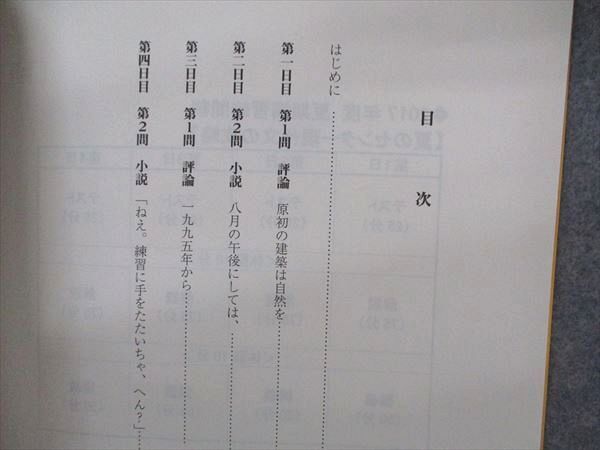 目次
はじめに
第一日目 第1問 評論 原初の建築は自然を
第二日目 第2問 小説 八月の午後にしては、
第三日目 第1問 評論 一九九五年から
第四日目 第2問 小説 「ねえ。練習に手をたたいちゃ、へん？」